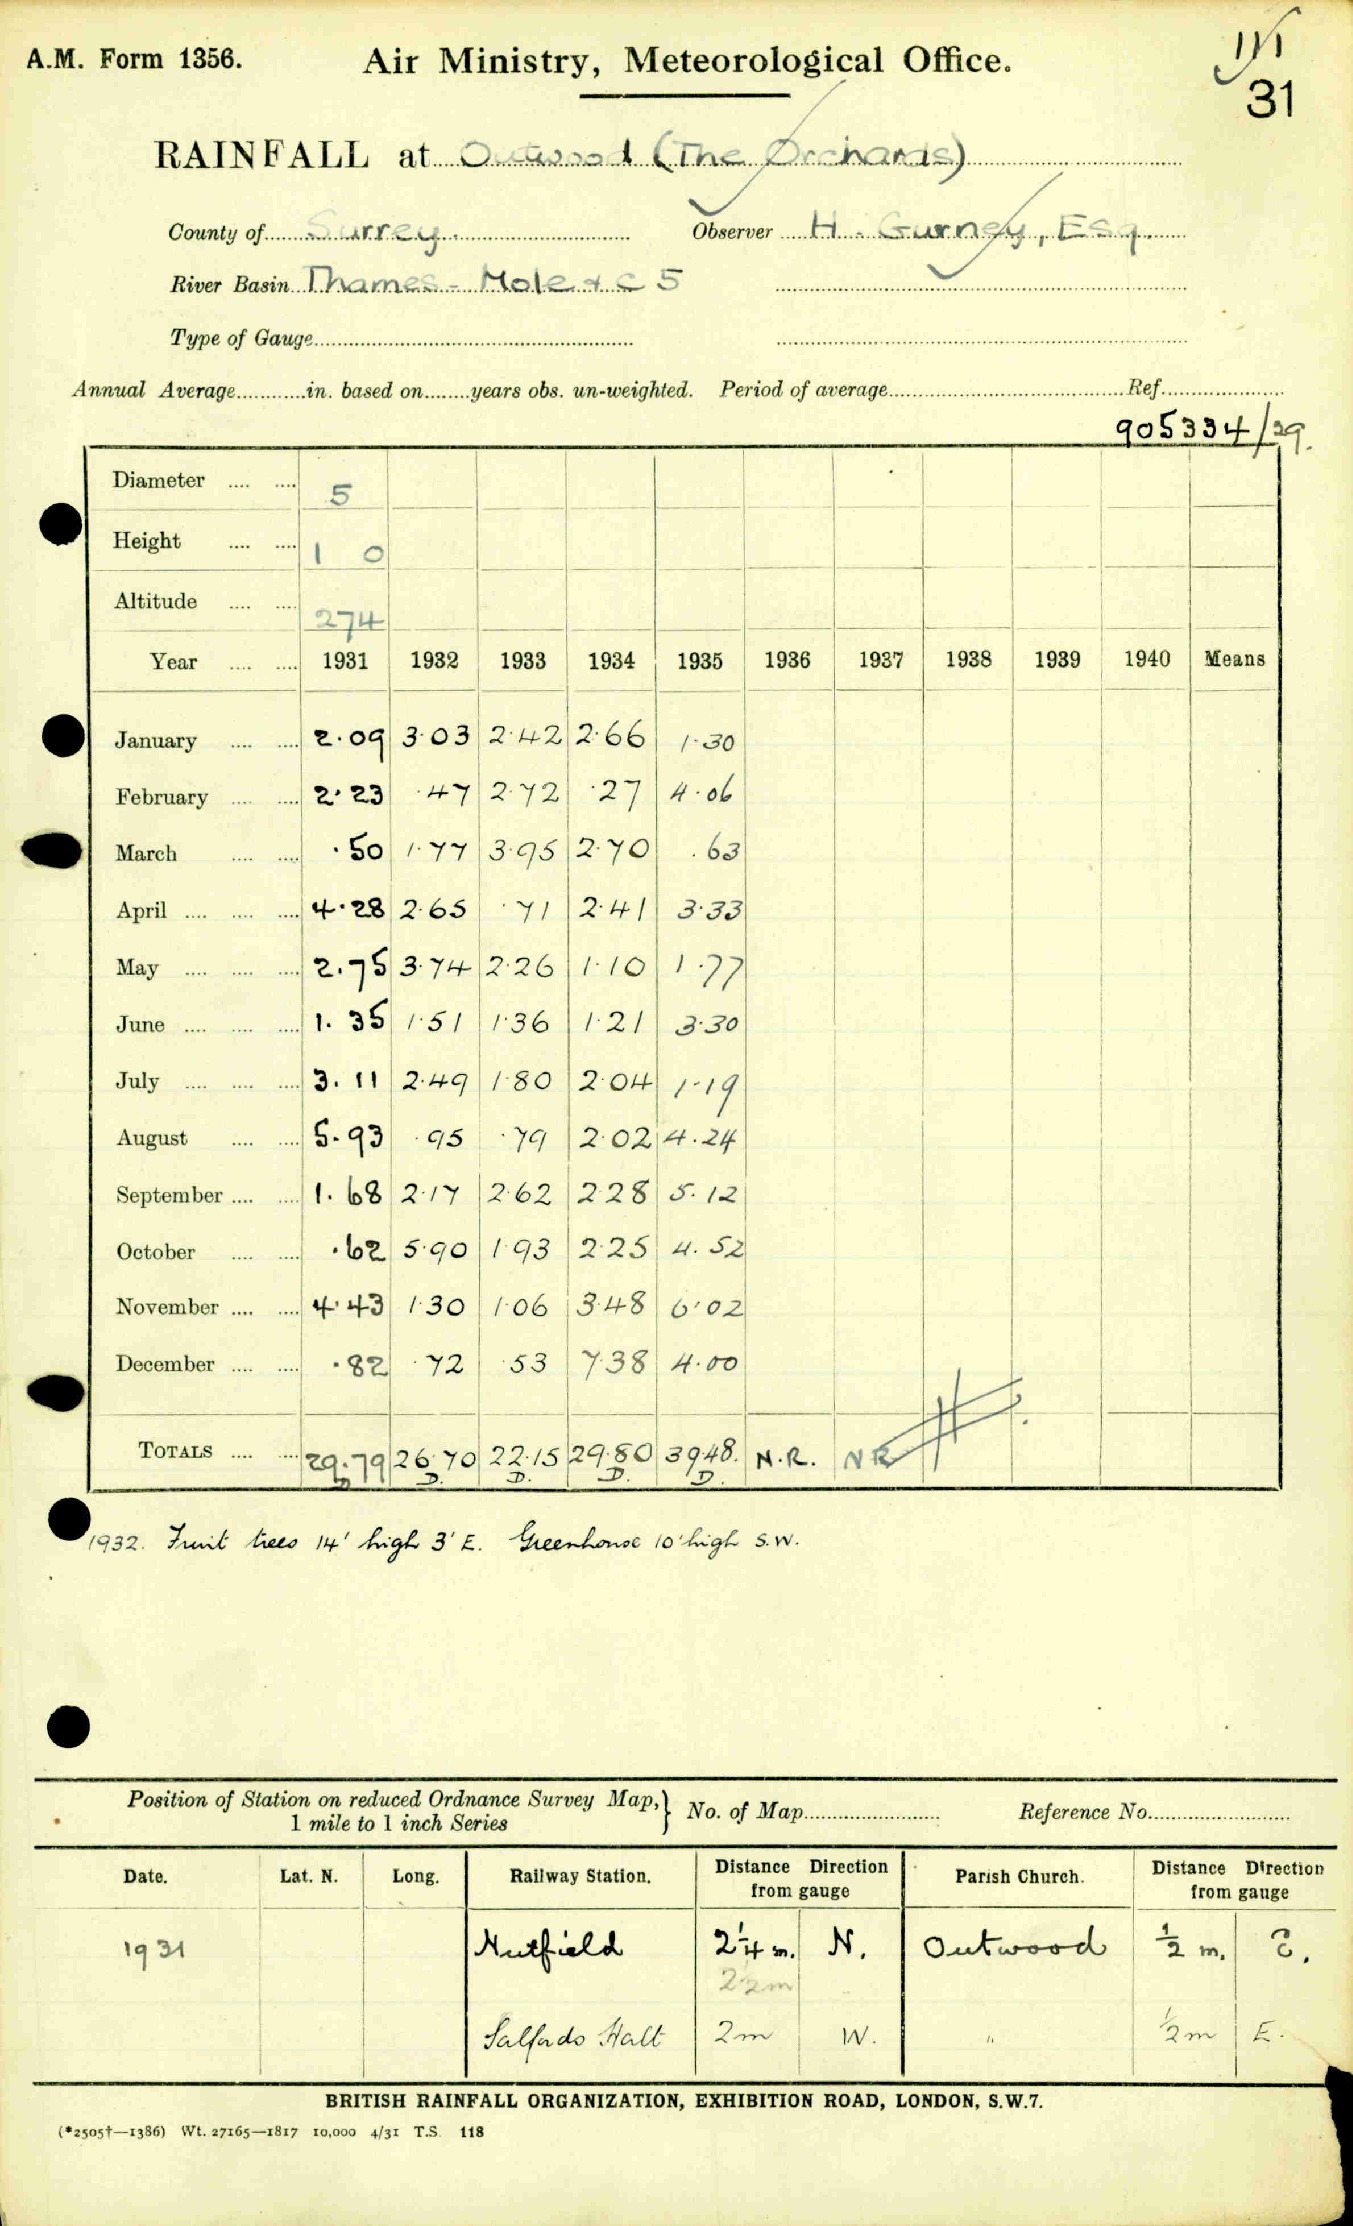 A.M. Form 1356.
Air Ministry, Meteorological Office.
31
RAINFALL at Outwood (The Orchards)
County of Surrey. Observer H. Gurney, Esq.
River Basin Thames - Mole & C 5
Type of Gauge
Annual Average in. based on years obs. un-weighted. Period of average Ref.
905334/29.
Diameter 5
Height 1 0
Altitude 274
Year 1931 1932 1933 1934 1935 1936 1937 1938 1939 1940 Means
January 2.09 3.03 2.42 2.66 1.30
February 2.23 .47 2.72 .27 4.06
March .50 1.77 3.95 2.70 .63
April 4.28 2.65 .71 2.41 3.33
May 2.75 3.74 2.26 1.10 1.77
June 1.35 1.51 1.36 1.21 3.30
July 3.11 2.49 1.80 2.04 1.19
August 5.93 .95 .79 2.02 4.24
September 1.68 2.17 2.62 2.28 5.12
October .62 5.90 1.93 2.25 4.52
November 4.43 1.30 1.06 3.48 6.02
December .82 .72 .53 7.38 4.00
TOTALS 29.79 26.70 22.15 29.80 39.48. N.R. NR
D. D. D. D. D.
1932. Fruit trees 14' high 3' E. Greenhouse 10' high S.W.
Position of Station on reduced Ordnance Survey Map, } No. of Map Reference No.
1 mile to 1 inch Series
Date. Lat. N. Long. Railway Station. Distance Direction from gauge Parish Church. Distance Direction from gauge
1931 Nutfield 2¼ m. N. Outwood ½ m. E.
2½m
Salfords Halt 2m W. " ½m E.
BRITISH RAINFALL ORGANIZATION, EXHIBITION ROAD, LONDON, S.W.7.
(*2505†—1386) Wt. 27165—1817 10,000 4/31 T.S. 118